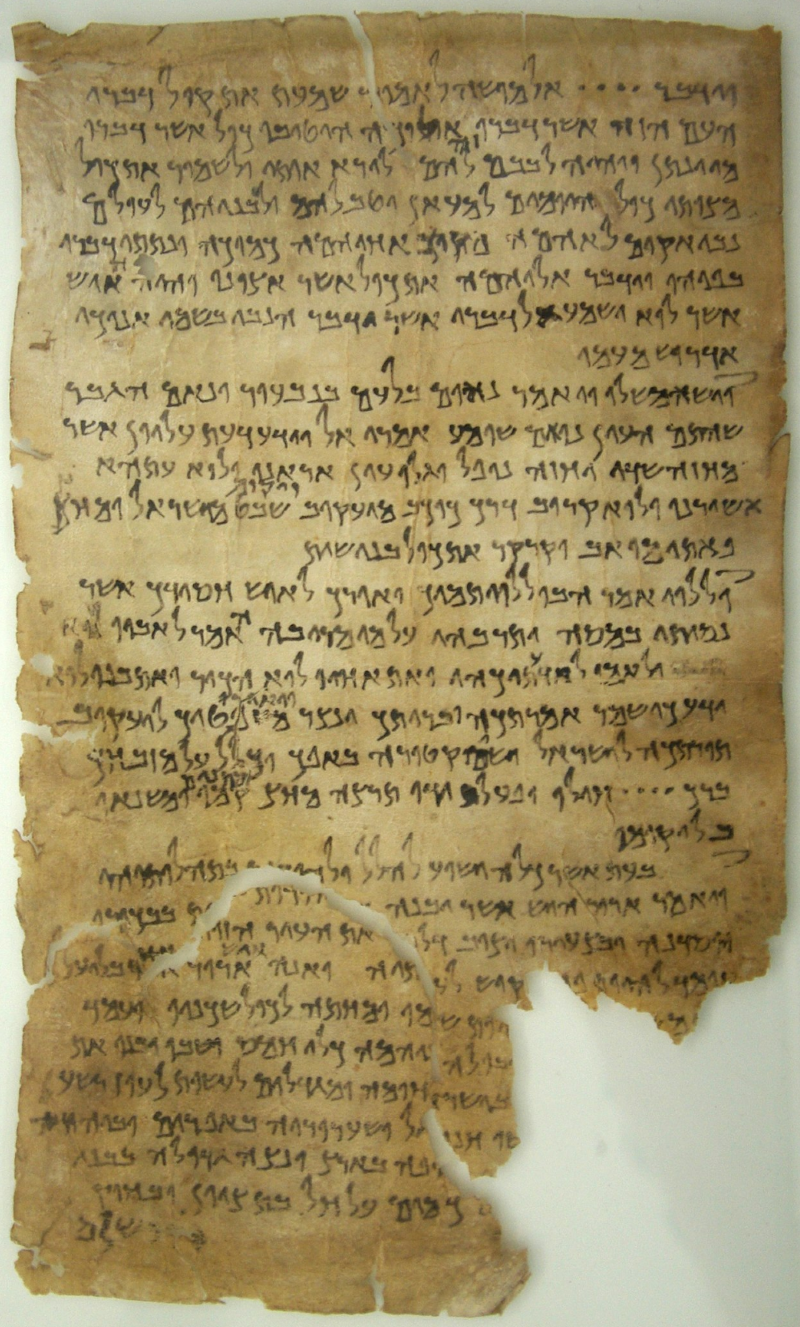 וידבר •••• אל מושה לאמור שמעת את קול דברי
העם הזה אשר דברו אליכה היטיבו כול אשר דברו
מי ינתן ויהיה לבבם זה להם לירא אותי ולשמור את כול
מצותי כול היומים למעאן יטב להם ולבניהם לעולם
נבי אקים לאהמה מקרב אחיהמה כמוכה ונתתי דברי
בפיהו וידבר אליהמה את כול אשר אצונו והיה האיש
אשר לוא ישמע אל דברי אשר ידבר הנבי בשמי אנוכי
אדרוש מעמו
וישא משלו ויאמר נאום בלעם בנבעור ונאם הגבר
שהתם העין נואם שומע אמרי אל וידע דעת עליון אשר
מחזה שדי יחזה נופל וגלו עין אראנו ולוא עתהא
אשורנו ולוא קרוב דרך כוכב מיעקוב ויקום שבט מישראל ומחץ
פאתי מואב וקרקר את כול בני שית
וללוי אמר הבו ללוי תמיך ואורך לאיש חסידך אשר
נסיתו במסה ותרבהו על מי מריבה האמר לאביו לוא
ולאמו לוא ידעתיכהו ואת אחיו לוא הכיר ואת בנו לוא
ידע כי שמר אמרתכה ובריתך ינצר ויאירו משפטיך ליעקוב
תורתכה לישראל ישים קטורה באפך וכליל על מזבחך
ברך •••• חילו ופעל ידו תרצה מחץ מתנים קמו ומשנאו
בל יקומו
בעת אשר כלה ישוע להלל ולהודות בתהלותיהו
ויאמר ארור היש אשר יבנה את העיר הזות בבכורו
ייסדנה ובצעירו יציב דלתיה ואנה איש ארור אחד בליעל
עומד להיות יקוש לעמו ומחתה לכול שכניו ועמד
להיות שניהמה כלי חמס ושבו ובנו את
חומה ומגדלים לעשות לעוז רשע
בישראל ושערוריה באפרים וביהודה
חנופה בארץ ונצה גדולה בבני
כמים על חל בת ציון ובחוק
ירושלם